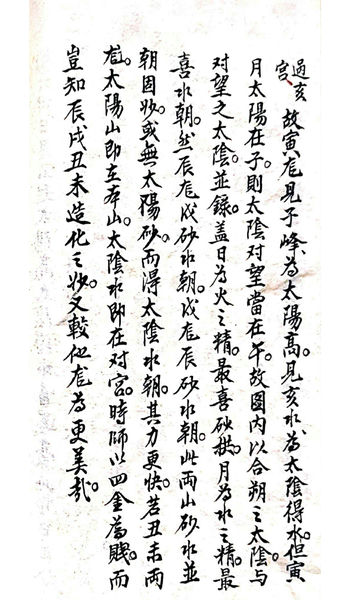 過亥宮 故寅尨見子峰為太陽高。見亥水為太陰得水。但寅
月太陽在子。則太陰对望當在午。故图内以合朔之太陰与
对望之太陰並録。盖日為火之精。最喜砂拱。月為水之精。最
喜水朝。然辰尨戌砂水朝。戌尨辰砂水朝。此両山砂水並
朝固妙。或無太陽砂。而得太陰水朝。其力更快。若丑未両
尨。太陽山即在本山。太陰水即在对宮。時師以四金為賤。而
豈知辰戌丑未造化之妙。又較他尨為更美哉。